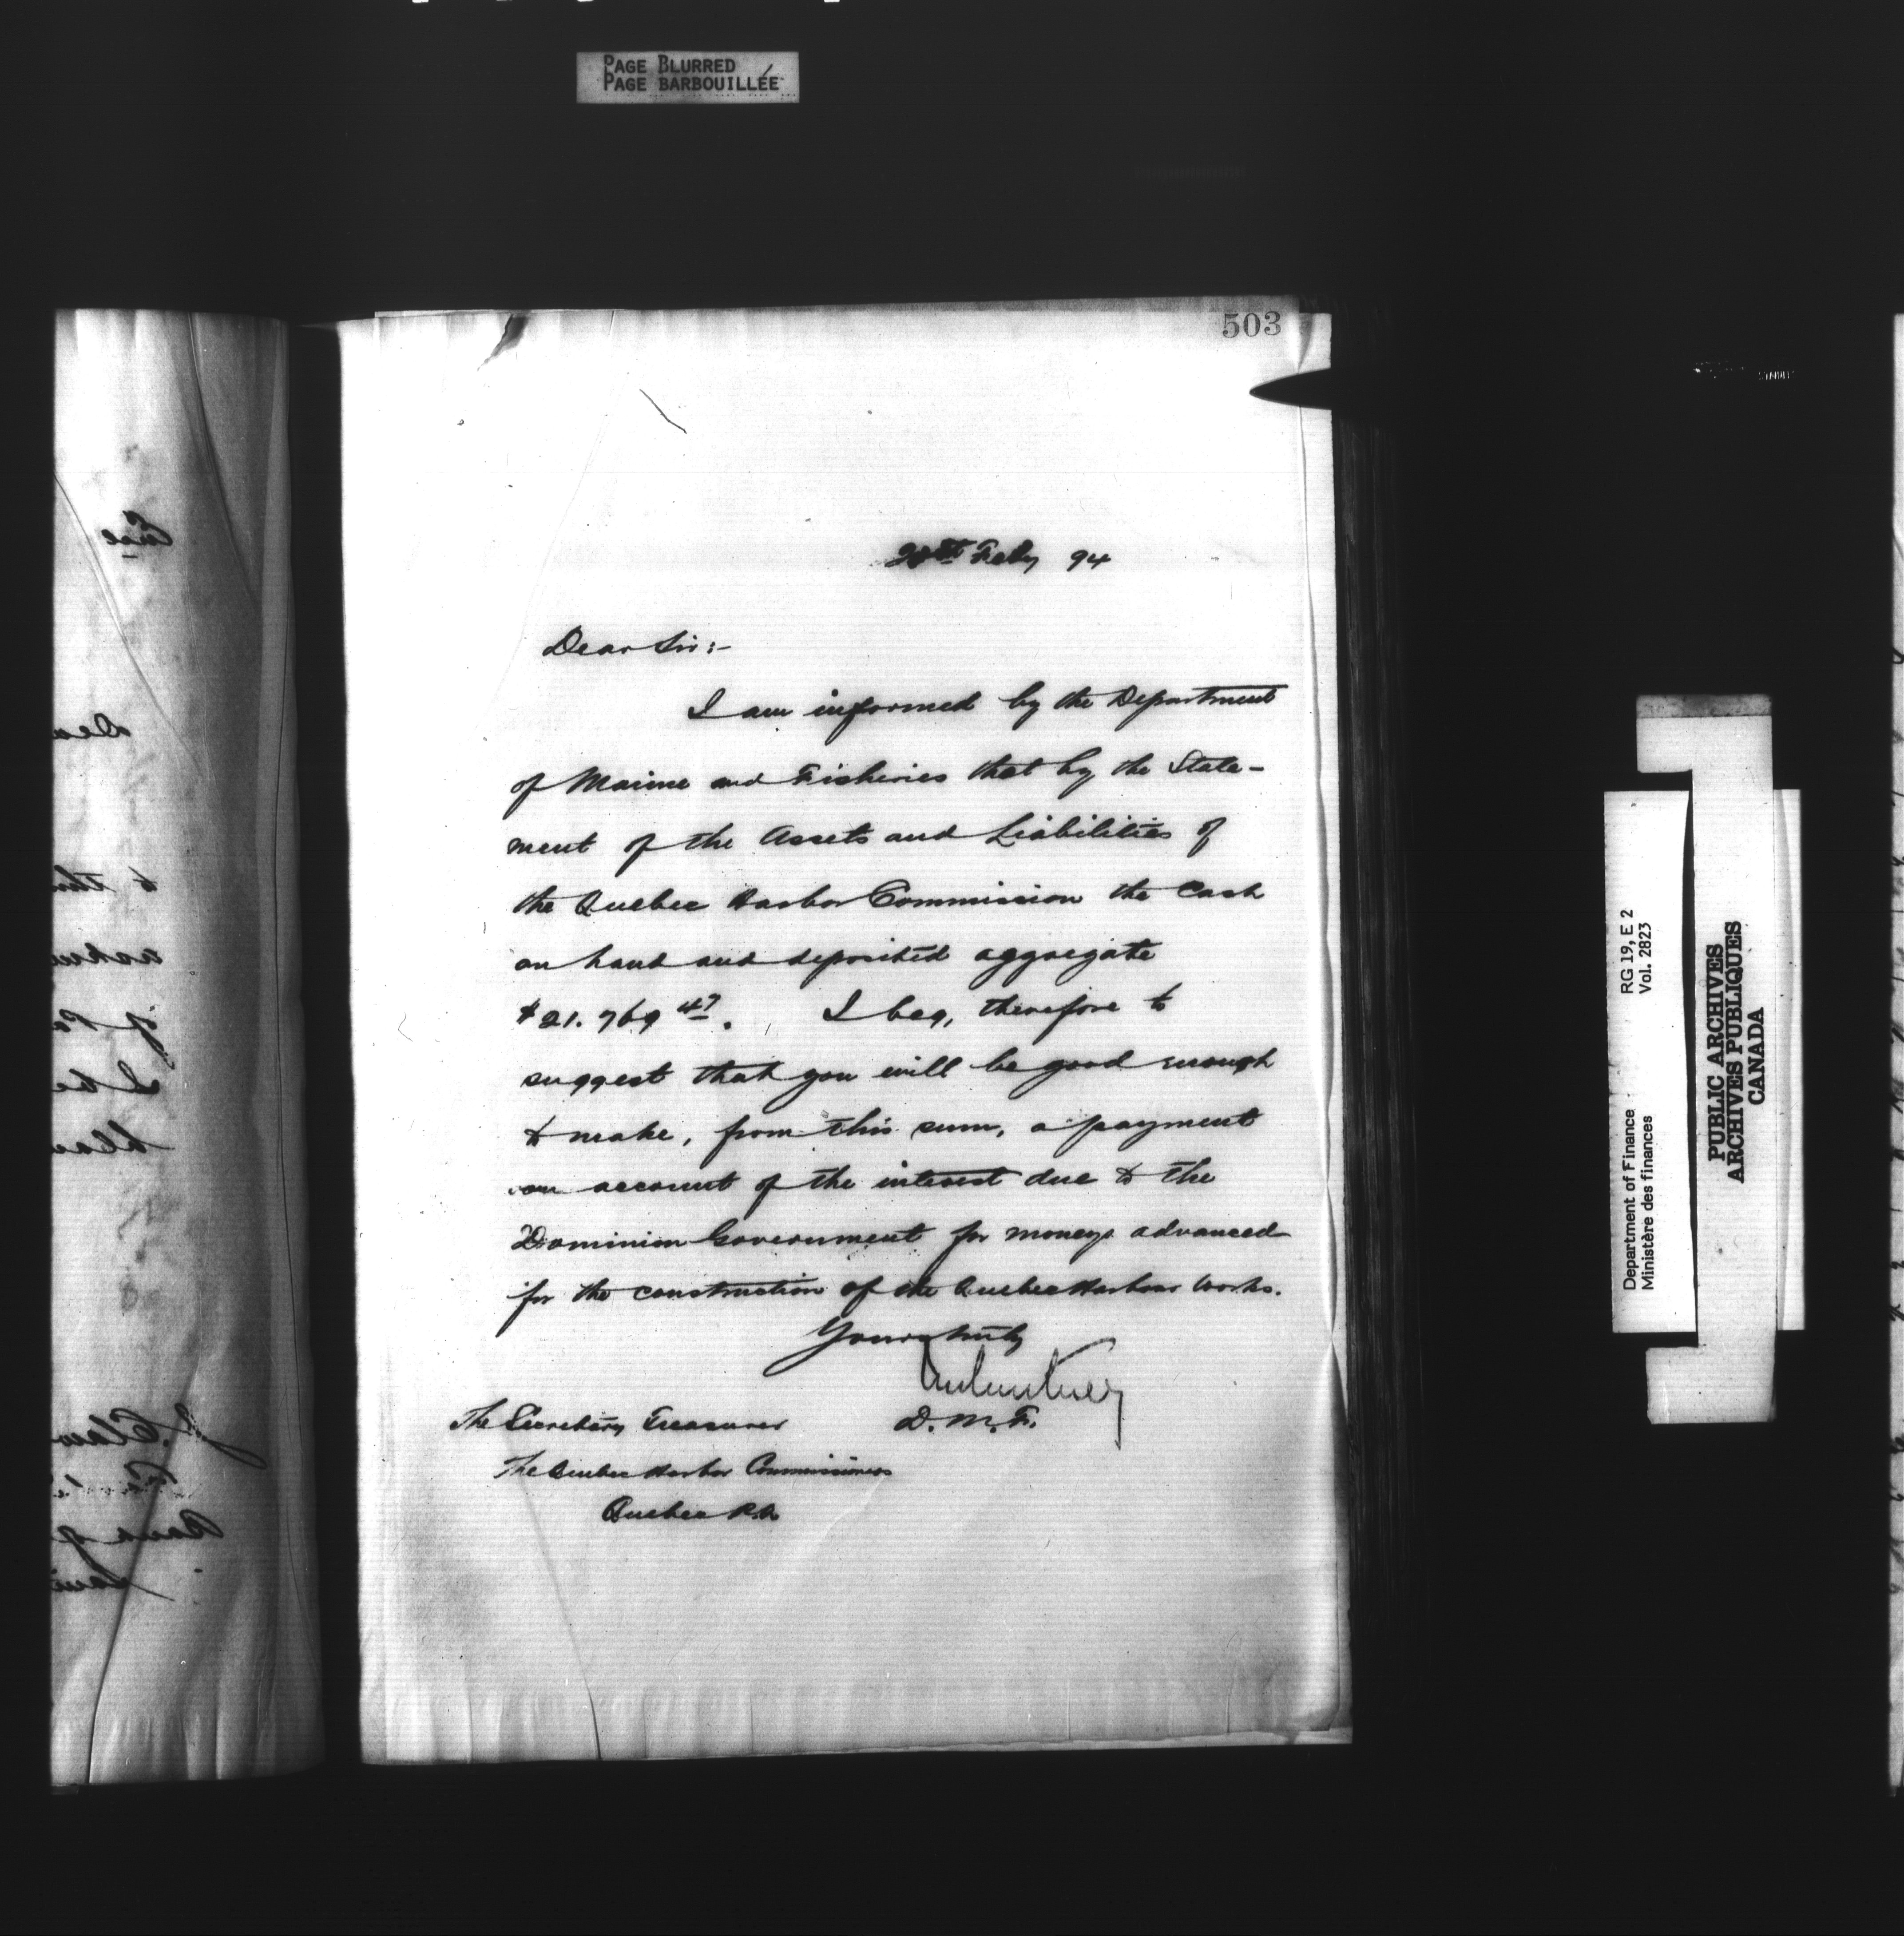 PAGE BLURRED
PAGE BARBOUILLÉE
503
Feby 94
Dear Sir:-
I am informed by the Department
of Marine and Fisheries that by the State-
ment of the Assets and Liabilities of
the Quebec Harbor Commission the Cash
on hand and deposited aggregate
$21.769 47. I beg, therefore to
suggest that you will be good enough
to make, from this sum, a payment
on account of the interest due to the
Dominion Government for moneys advanced
for the construction of the Quebec Harbour Works.
Yours truly
D. M. F.
The Secretary Treasurer
The Quebec Harbor Commissioners
Quebec P.Q.
Department of Finance RG 19, E 2
Ministère des finances Vol. 2823
PUBLIC ARCHIVES
ARCHIVES PUBLIQUES
CANADA